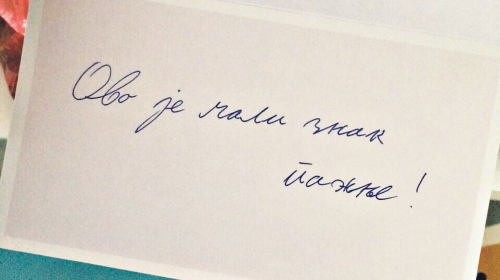 Ово је мали знак
пажње!